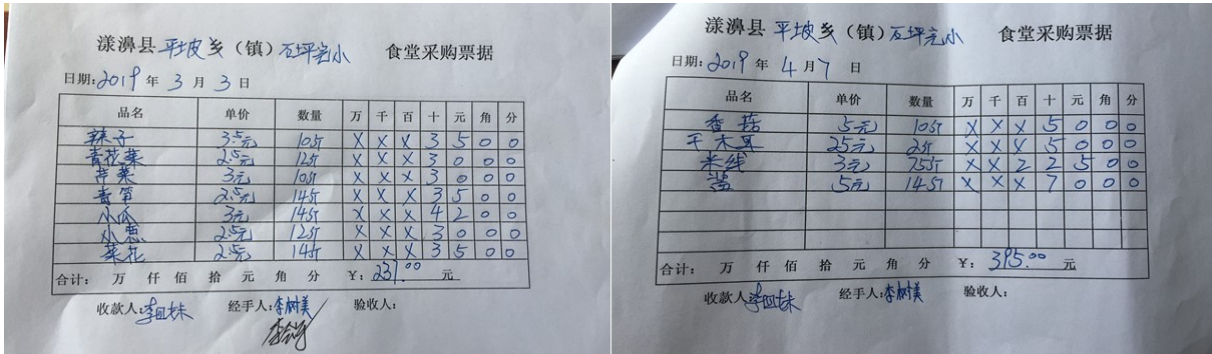 漾濞县 平坡乡（镇）石坪完小 食堂采购票据
日期：2019 年 3 月 3 日
品名 单价 数量 万 千 百 十 元 角 分
辣子 3.5元 10斤 X X X 3 5 0 0
青花菜 2.5元 12斤 X X X 3 0 0 0
芹菜 3元 10斤 X X X 3 0 0 0
青笋 2.5元 14斤 X X X 3 5 0 0
小瓜 3元 14斤 X X X 4 2 0 0
小葱 2.5元 12斤 X X X 3 0 0 0
菜花 2.5元 14斤 X X X 3 5 0 0
合计： 万 仟 佰 拾 元 角 分 ¥：237.00 元
收款人： 经手人：李树美 验收人：
漾濞县 平坡乡（镇）石坪完小 食堂采购票据
日期：2019 年 4 月 7 日
品名 单价 数量 万 千 百 十 元 角 分
香菇 5元 10斤 X X X 5 0 0 0
干木耳 25元 2斤 X X X 5 0 0 0
米线 3元 75斤 X X 2 2 5 0 0
盐 5元 14斤 X X X 7 0 0 0
合计： 万 仟 佰 拾 元 角 分 ¥：395.00 元
收款人： 经手人：李树美 验收人：